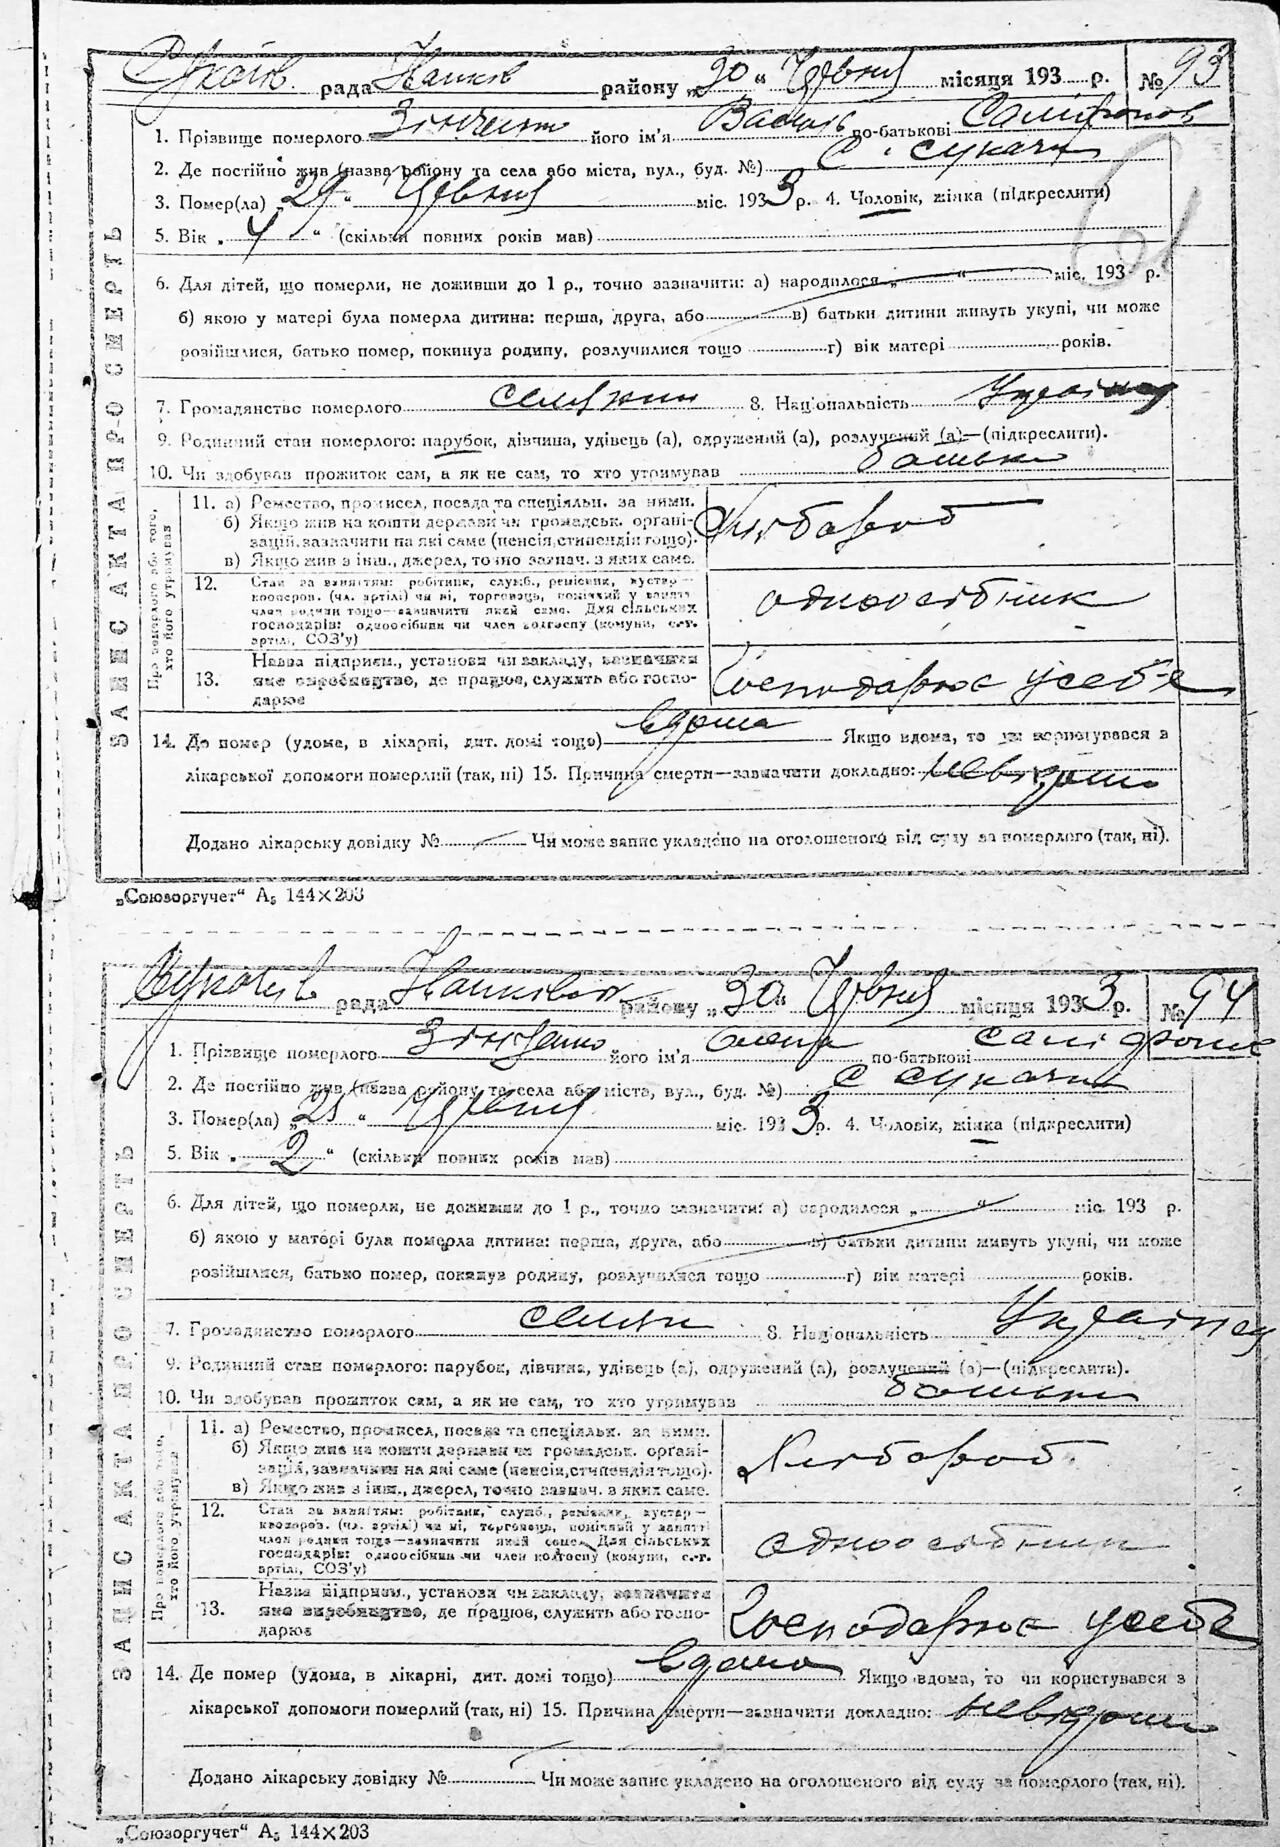 рада района „30“ Червня місяця 193 р. № 93
1. Прізвище померлого його ім'я Василь по-батькові
2. Де постійно жив (назва району та села або міста, вул., буд. №) с. Сукачі
3. Помер(ла) „29“ Червня міс. 1933 р. 4. Чоловік, жінка (підкреслити)
5. Вік „4“ (скільки повних років мав)
6. Для дітей, що померли, не доживши до 1 р., точно зазначити: а) народилося „ “ міс. 193 р.
б) якою у матері була померла дитина: перша, друга, або в) батьки дитини живуть укупі, чи може
розійшлися, батько помер, покинув родину, розлучилися тощо г) вік матері років.
7. Громадянство померлого селянин 8. Національність
9. Родинний стан померлого: парубок, дівчина, удівець (а), одружений (а), розлучений (а)—(підкреслити).
10. Чи здобував прожиток сам, а як не сам, то хто утримував батьки
ЗАПИС АКТА ПРО СМЕРТЬ
Про померлого або того, хто його утримував
11. а) Ремество, промисел, посада та спеціяльн. за ними.
б) Якщо жив на кошти держави чи громадськ. органі-
зацій, зазначити на які саме (пенсія, стипендія тощо).
в) Якщо жив з інш., джерел, точно зазнач. з яких саме.
Хлібороб
12. Стан за заняттям: робітник, служб., ремісник, кустар—
кооперов. (чл. артілі) чи ні, торговець, помічний у занятті
член родини тощо—зазначити який саме. Для сільських
господарів: одноосібник чи член колгоспу (комуни, с.-г.
артілі, СОЗ'у)
одноосібник
13. Назва підприєм., установи чи закладу, зазначити
яке виробництво, де працює, служить або госпо-
дарює
Господарює у себе
14. Де помер (удома, в лікарні, дит. домі тощо) вдома Якщо вдома, то чи користувався з
лікарської допомоги померлий (так, ні) 15. Причина смерти—зазначити докладно: невідомо
Додано лікарську довідку № Чи може запис укладено на оголошеного від суду за померлого (так, ні).
„Союзоргучет“ А₅ 144×203
рада району „30“ Червня місяця 1933 р. № 94
1. Прізвище померлого його ім'я по-батькові
2. Де постійно жив (назва району та села або міста, вул., буд. №) с Сукачі
3. Помер(ла) „ “ Червня міс. 1933 р. 4. Чоловік, жінка (підкреслити)
5. Вік „2“ (скільки повних років мав)
6. Для дітей, що померли, не доживши до 1 р., точно зазначити: а) народилося „ “ міс. 193 р.
б) якою у матері була померла дитина: перша, друга, або в) батьки дитини живуть укупі, чи може
розійшлися, батько помер, покинув родину, розлучилися тощо г) вік матері років.
7. Громадянство померлого 8. Національність
9. Родинний стан померлого: парубок, дівчина, удівець (а), одружений (а), розлучений (а)—(підкреслити).
10. Чи здобував прожиток сам, а як не сам, то хто утримував батьки
ЗАПИС АКТА ПРО СМЕРТЬ
Про померлого або того, хто його утримував
11. а) Ремество, промисел, посада та спеціяльн. за ними.
б) Якщо жив на кошти держави чи громадськ. органі-
зацій, зазначити на які саме (пенсія, стипендія тощо).
в) Якщо жив з інш., джерел, точно зазнач. з яких саме.
Хлібороб
12. Стан за заняттям: робітник, служб., ремісник, кустар—
кооперов. (чл. артілі) чи ні, торговець, помічний у занятті
член родини тощо—зазначити який саме. Для сільських
господарів: одноосібник чи член колгоспу (комуни, с.-г.
артілі, СОЗ'у)
одноосібник
13. Назва підприєм., установи чи закладу, зазначити
яке виробництво, де працює, служить або госпо-
дарює
Господарює у себе
14. Де помер (удома, в лікарні, дит. домі тощо) вдома Якщо вдома, то чи користувався з
лікарської допомоги померлий (так, ні) 15. Причина смерти—зазначити докладно: невідомо
Додано лікарську довідку № Чи може запис укладено на оголошеного від суду за померлого (так, ні).
„Союзоргучет“ А₅ 144×203